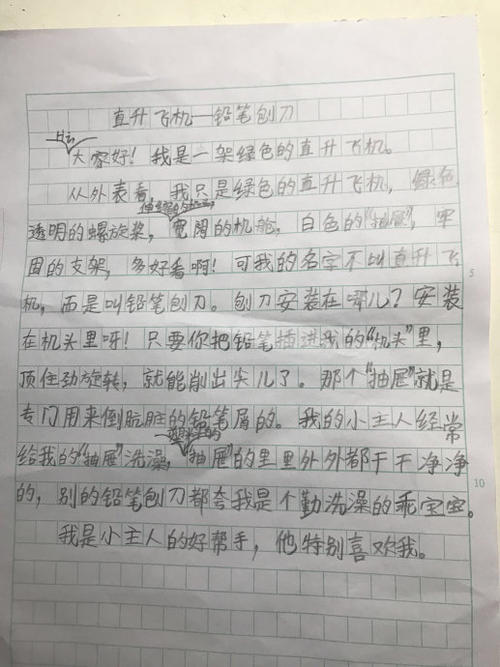 直升飞机—铅笔刨刀
嗨
大家好！我是一架绿色的直升飞机。
从外表看，我只是绿色的直升飞机，绿色
透明的螺旋桨，宽阔的机舱，白色的“抽屉”，牢
固的支架，多好看啊！可我的名字不叫直升飞
机，而是叫铅笔刨刀。刨刀安装在哪儿？安装
在机头里呀！只要你把铅笔插进我的“机头”里，
顶住劲旋转，就能削出尖儿了。那个“抽屉”就是
专门用来倒肮脏的铅笔屑的。我的小主人经常
给我的“抽屉”洗澡，“抽屉”的里里外外都干干净净
的，别的铅笔刨刀都夸我是个勤洗澡的乖宝宝。
我是小主人的好帮手，他特别喜欢我。
5
10